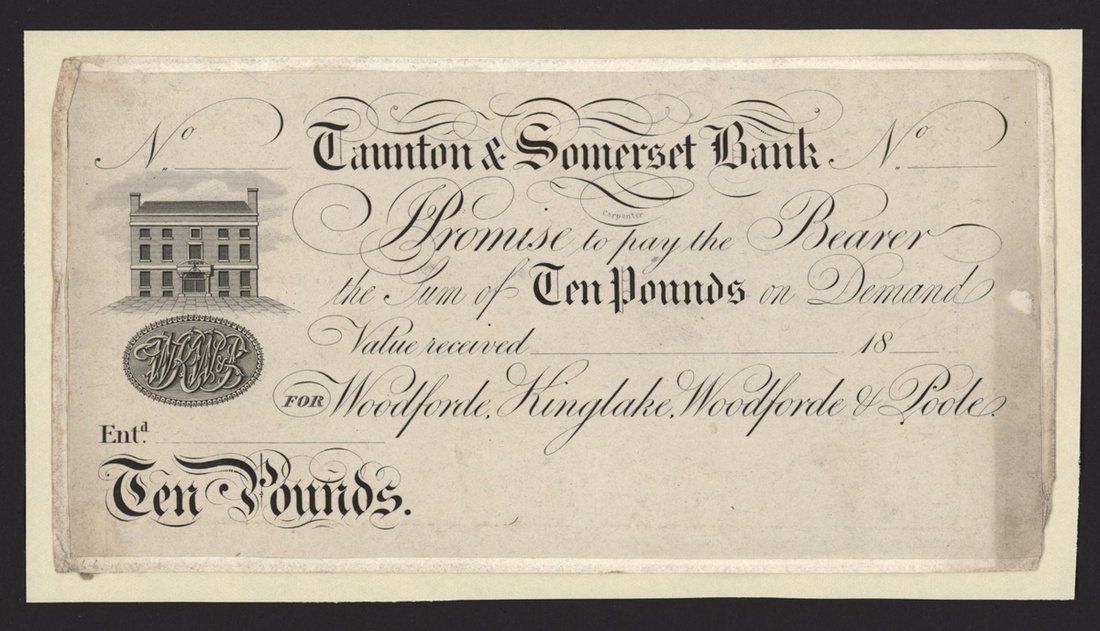 No. Taunton & Somerset Bank No.
Carpenter
I Promise to pay the Bearer
the Sum of Ten Pounds on Demand
Value received 18
FOR Woodforde, Kinglake, Woodforde & Poole.
Entd.
Ten Pounds.